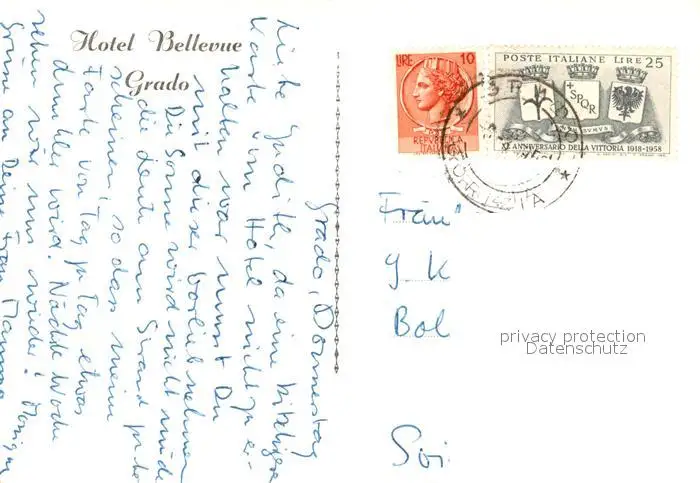 Hotel Bellevue
Grado
Grado, Donnerstag
Liebe Judith, da eine billigere
Karte vom Hotel nicht zu er-
halten war musst Du
mit dieser Vorlieb nehmen
Die Sonne wird nicht müde
die Leute am Strand zu be
scheinen, so dass meine
Farbe von Tag zu Tag etwas
dunkler wird. Nächste Woche
sehen wir uns wieder!
Grüsse an Deine Frau Mamma
LIRE 10
REPUBBLICA
ITALIANA
POSTE ITALIANE LIRE 25
SPQR
XL ANNIVERSARIO DELLA VITTORIA 1918-1958
Fräu
J K
Bol
privacy protection
Datenschutz